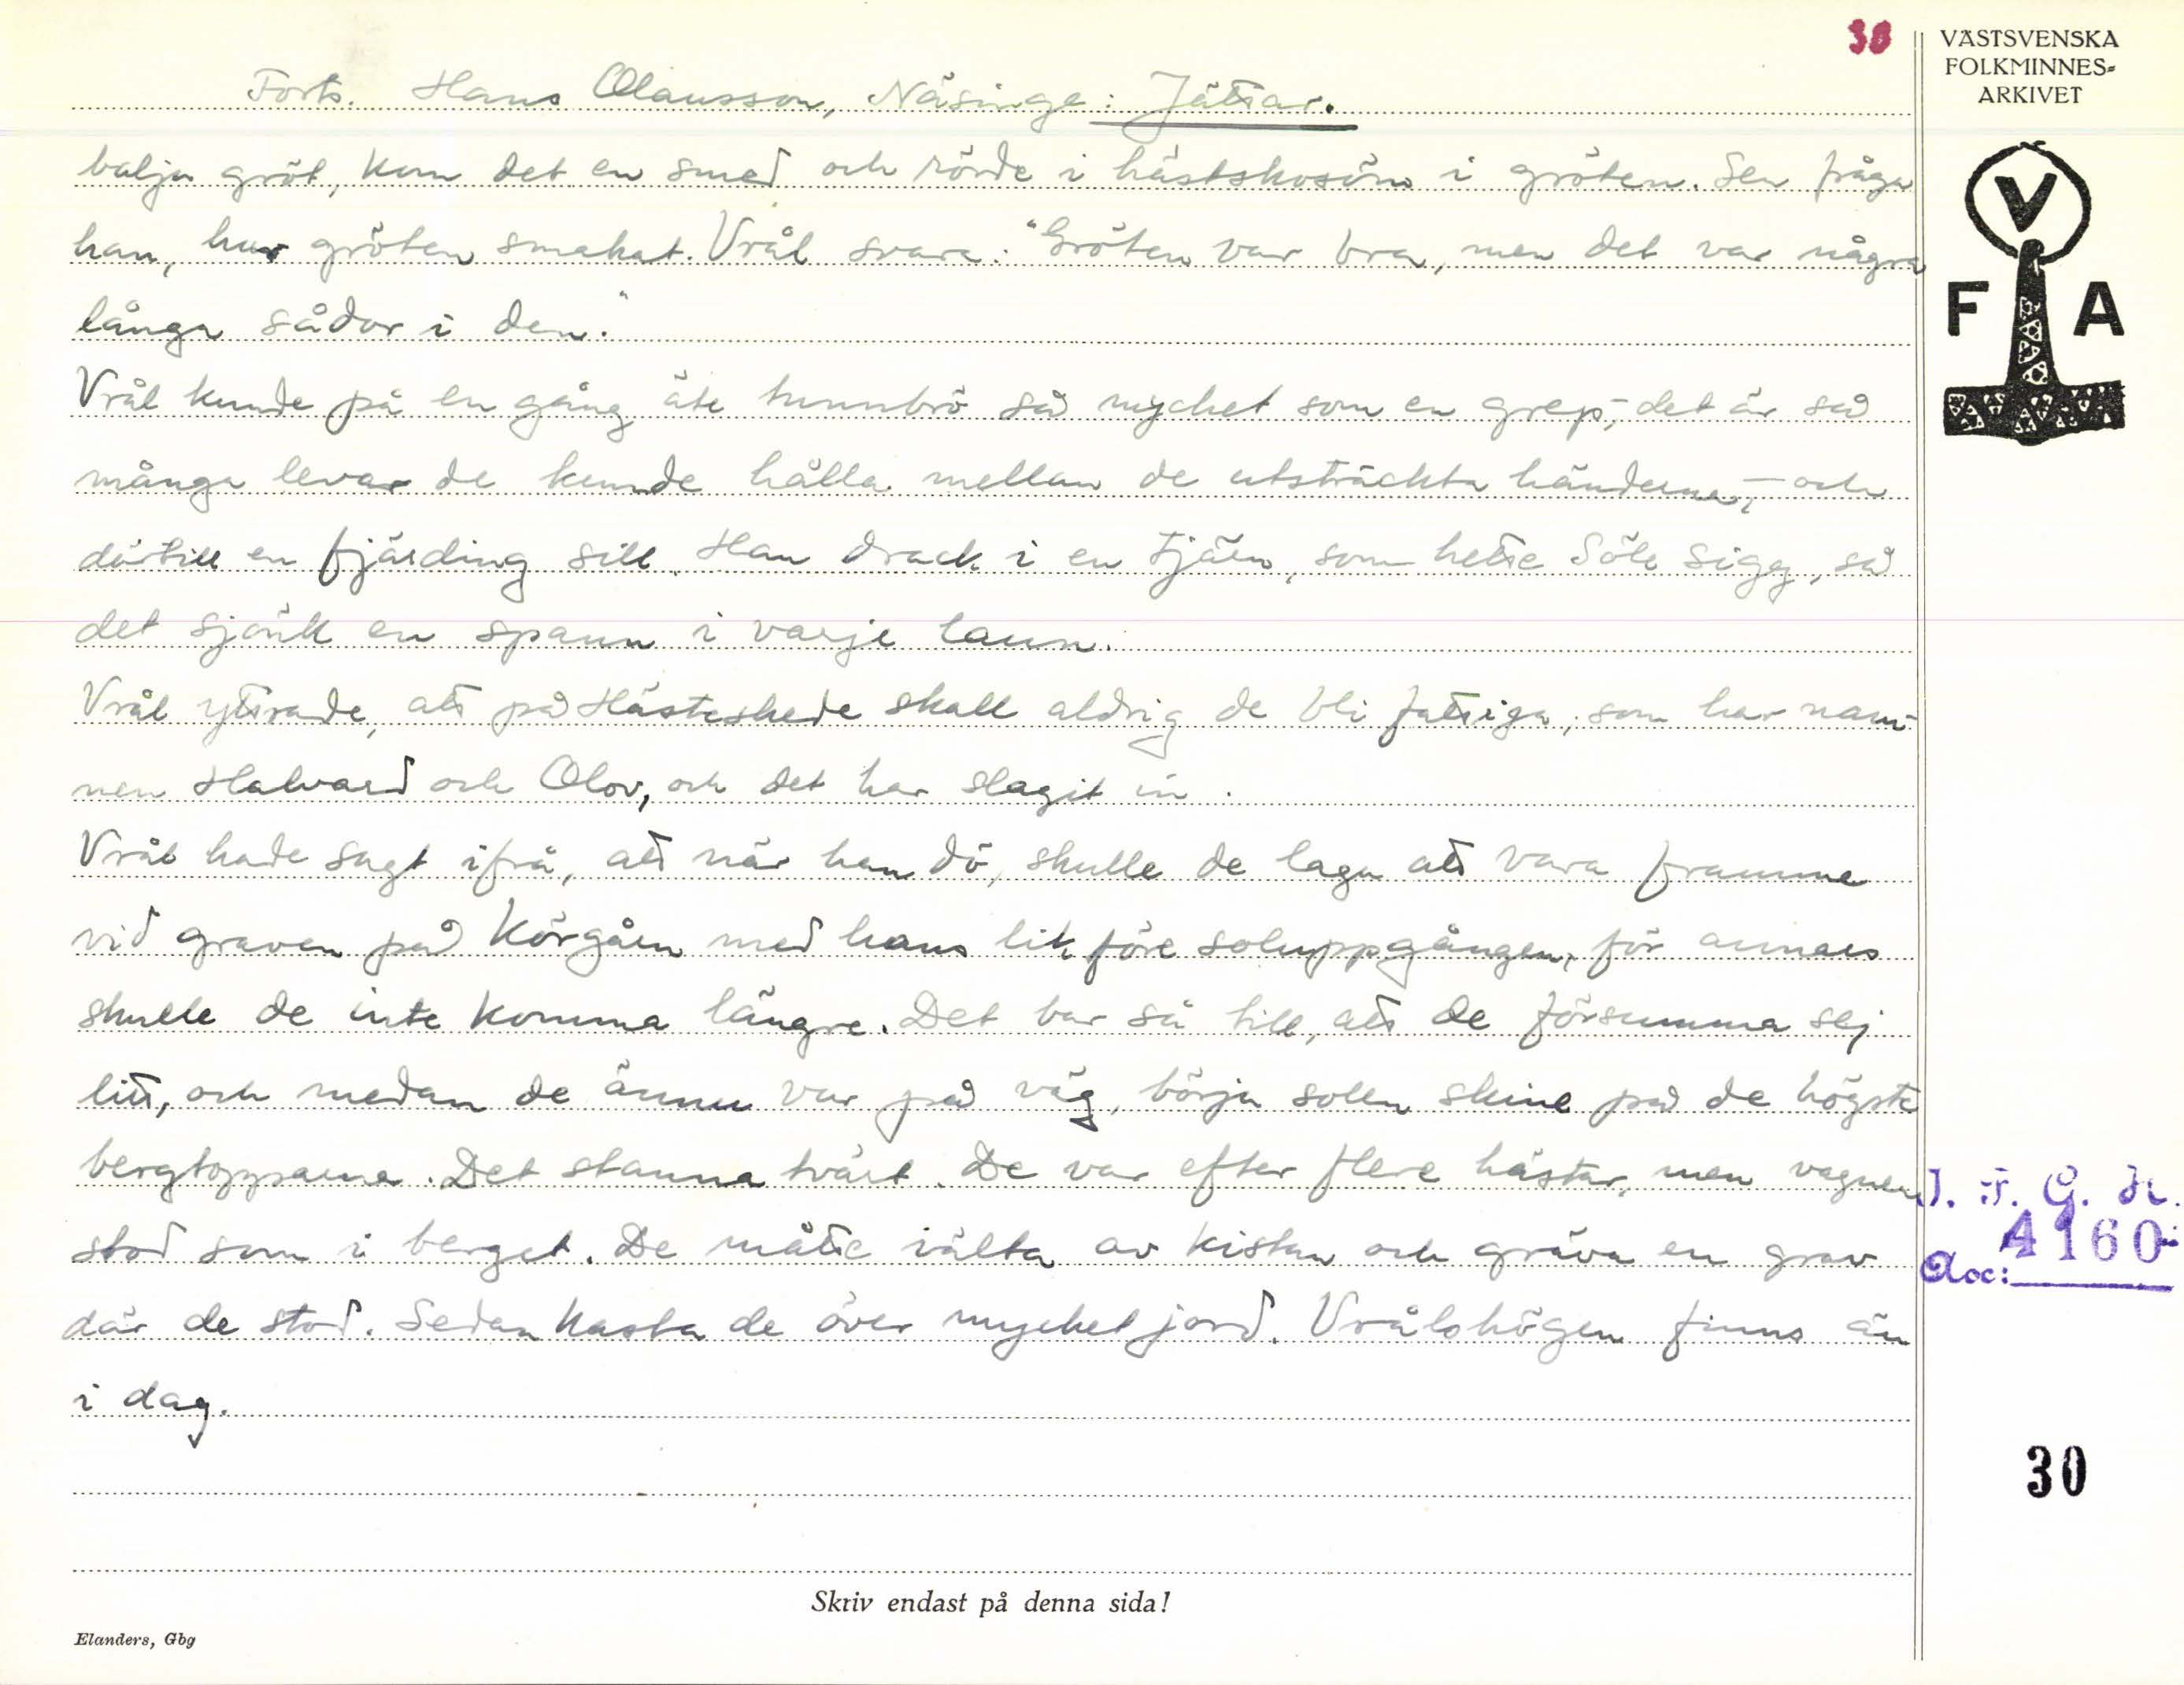 30
VÄSTSVENSKA
FOLKMINNES-
ARKIVET
Forts. Hans Olausson, Näsinge: Jättar.
balja gröt, kom det en smed och rörde i hästskosöm i gröten. Sen fråga
han, hur gröten smakat. Vrål svara: "Gröten var bra, men det var några
långa sådor i den."
Vrål kunde på en gång äte tunnbrö så mychet som en grep,- det är så
många levar de kunde hålla mellan de utsträckta händerna,- och
därtill en fjärding sill. Han drack i en tjärn, som hette Söle sigg, så
det sjönk en spann i varje laun.
Vrål yttrade, att på Hästeskede skall aldrig de bli fattiga, som har nam-
nen Halvard och Olov, och det har slagit in.
Vrål hade sagt ifrå, att när han dö, skulle de laga att vara framme
vid graven på Körgårn med hans lik före soluppgången, för annars
skulle de inte komma längre. Det bar så till, att de försumma sej
litt, och medan de ännu var på väg, börja solen skine på de högste
bergtopparna. Det stanna tvärt. De var efter flere hästar, men vagnen
stod som i berget. De måtte välta av kistan och gräva en grav
där de stod. Sedan kasta de över mycket jord. Vrålshögen finns än
i dag.
V
F A
I. F. G. H.
4160
Acc:
30
Skriv endast på denna sida!
Elanders, Gbg